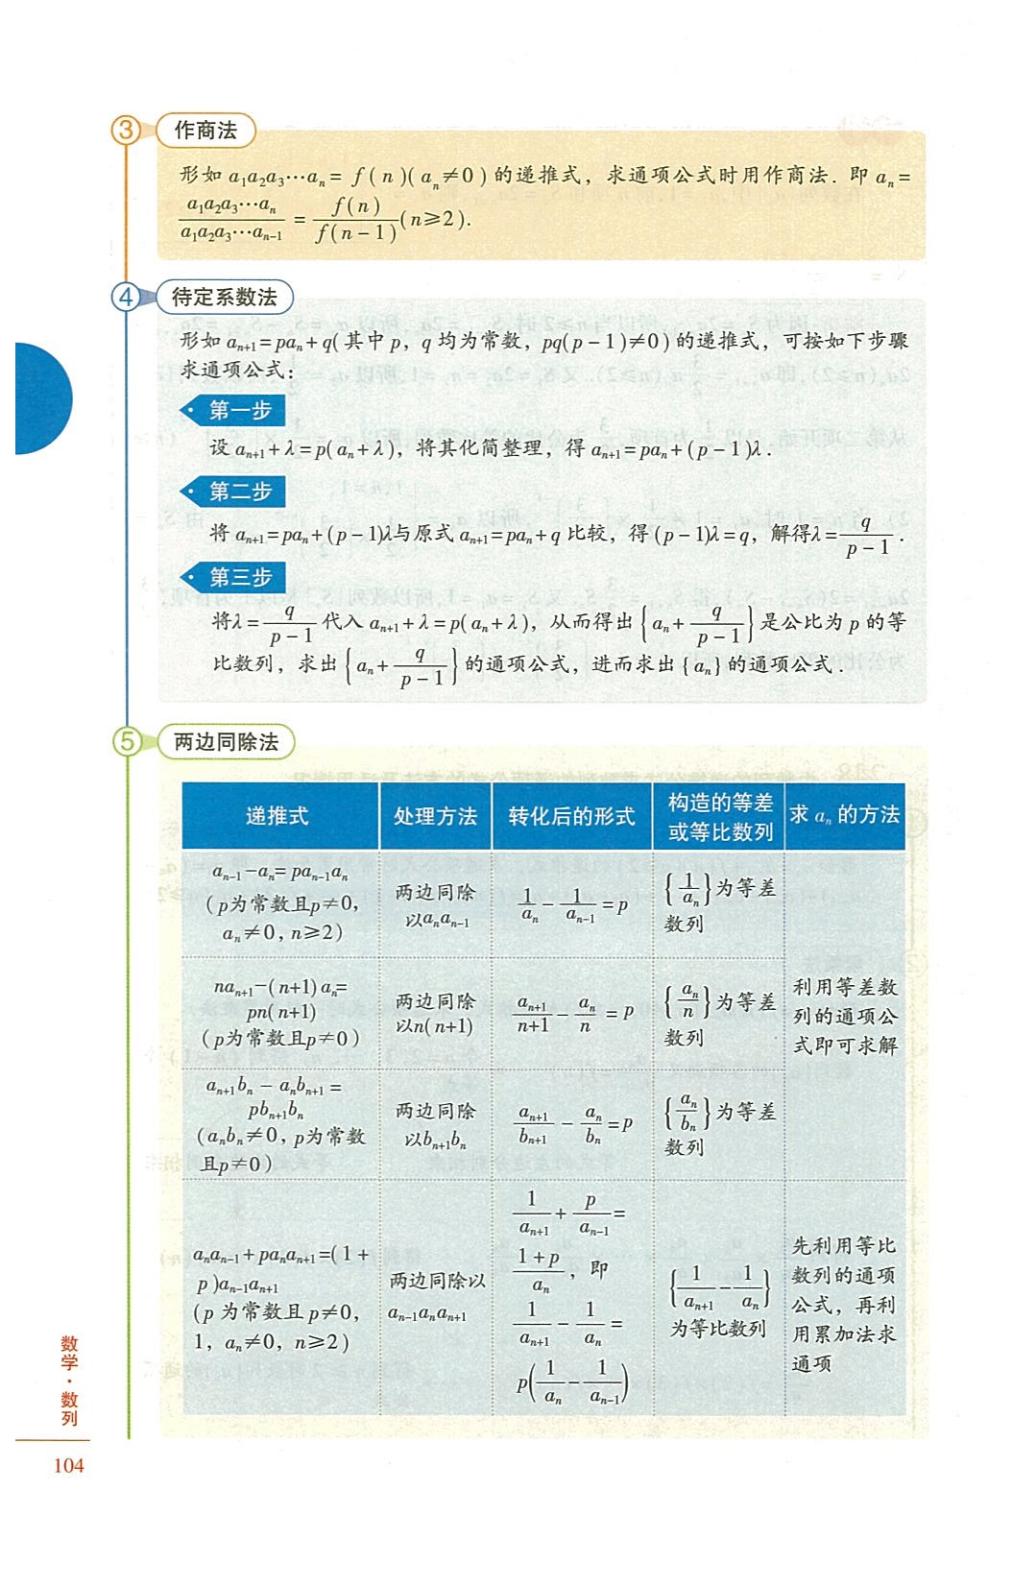 ③ 作商法
形如 a₁a₂a₃⋯aₙ= f(n)(aₙ≠0)的递推式，求通项公式时用作商法. 即 aₙ=
a₁a₂a₃⋯aₙ/a₁a₂a₃⋯aₙ₋₁ = f(n)/f(n−1)(n≥2).
④ 待定系数法
形如 aₙ₊₁=paₙ+q(其中 p，q 均为常数，pq(p−1)≠0)的递推式，可按如下步骤
求通项公式：
第一步
设 aₙ₊₁+λ=p(aₙ+λ)，将其化简整理，得 aₙ₊₁=paₙ+(p−1)λ.
第二步
将 aₙ₊₁=paₙ+(p−1)λ与原式 aₙ₊₁=paₙ+q 比较，得(p−1)λ=q，解得λ=q/(p−1).
第三步
将λ=q/(p−1)代入 aₙ₊₁+λ=p(aₙ+λ)，从而得出{aₙ+q/(p−1)}是公比为 p 的等
比数列，求出{aₙ+q/(p−1)}的通项公式，进而求出{aₙ}的通项公式.
⑤ 两边同除法
递推式
处理方法
转化后的形式
构造的等差
或等比数列
求 aₙ 的方法
aₙ₋₁−aₙ=paₙ₋₁aₙ
(p为常数且p≠0，
aₙ≠0，n≥2)
两边同除
以aₙaₙ₋₁
1/aₙ−1/aₙ₋₁=p
{1/aₙ}为等差
数列
naₙ₊₁−(n+1)aₙ=
pn(n+1)
(p为常数且p≠0)
两边同除
以n(n+1)
aₙ₊₁/(n+1)−aₙ/n=p
{aₙ/n}为等差
数列
利用等差数
列的通项公
式即可求解
aₙ₊₁bₙ−aₙbₙ₊₁=
pbₙ₊₁bₙ
(aₙbₙ≠0，p为常数
且p≠0)
两边同除
以bₙ₊₁bₙ
aₙ₊₁/bₙ₊₁−aₙ/bₙ=p
{aₙ/bₙ}为等差
数列
aₙaₙ₋₁+paₙaₙ₊₁=(1+
p)aₙ₋₁aₙ₊₁
(p 为常数且 p≠0，
1，aₙ≠0，n≥2)
两边同除以
aₙ₋₁aₙaₙ₊₁
1/aₙ₊₁+p/aₙ₋₁=
(1+p)/aₙ，即
1/aₙ₊₁−1/aₙ=
p(1/aₙ−1/aₙ₋₁)
{1/aₙ₊₁−1/aₙ}
为等比数列
先利用等比
数列的通项
公式，再利
用累加法求
通项
数学·数列
104